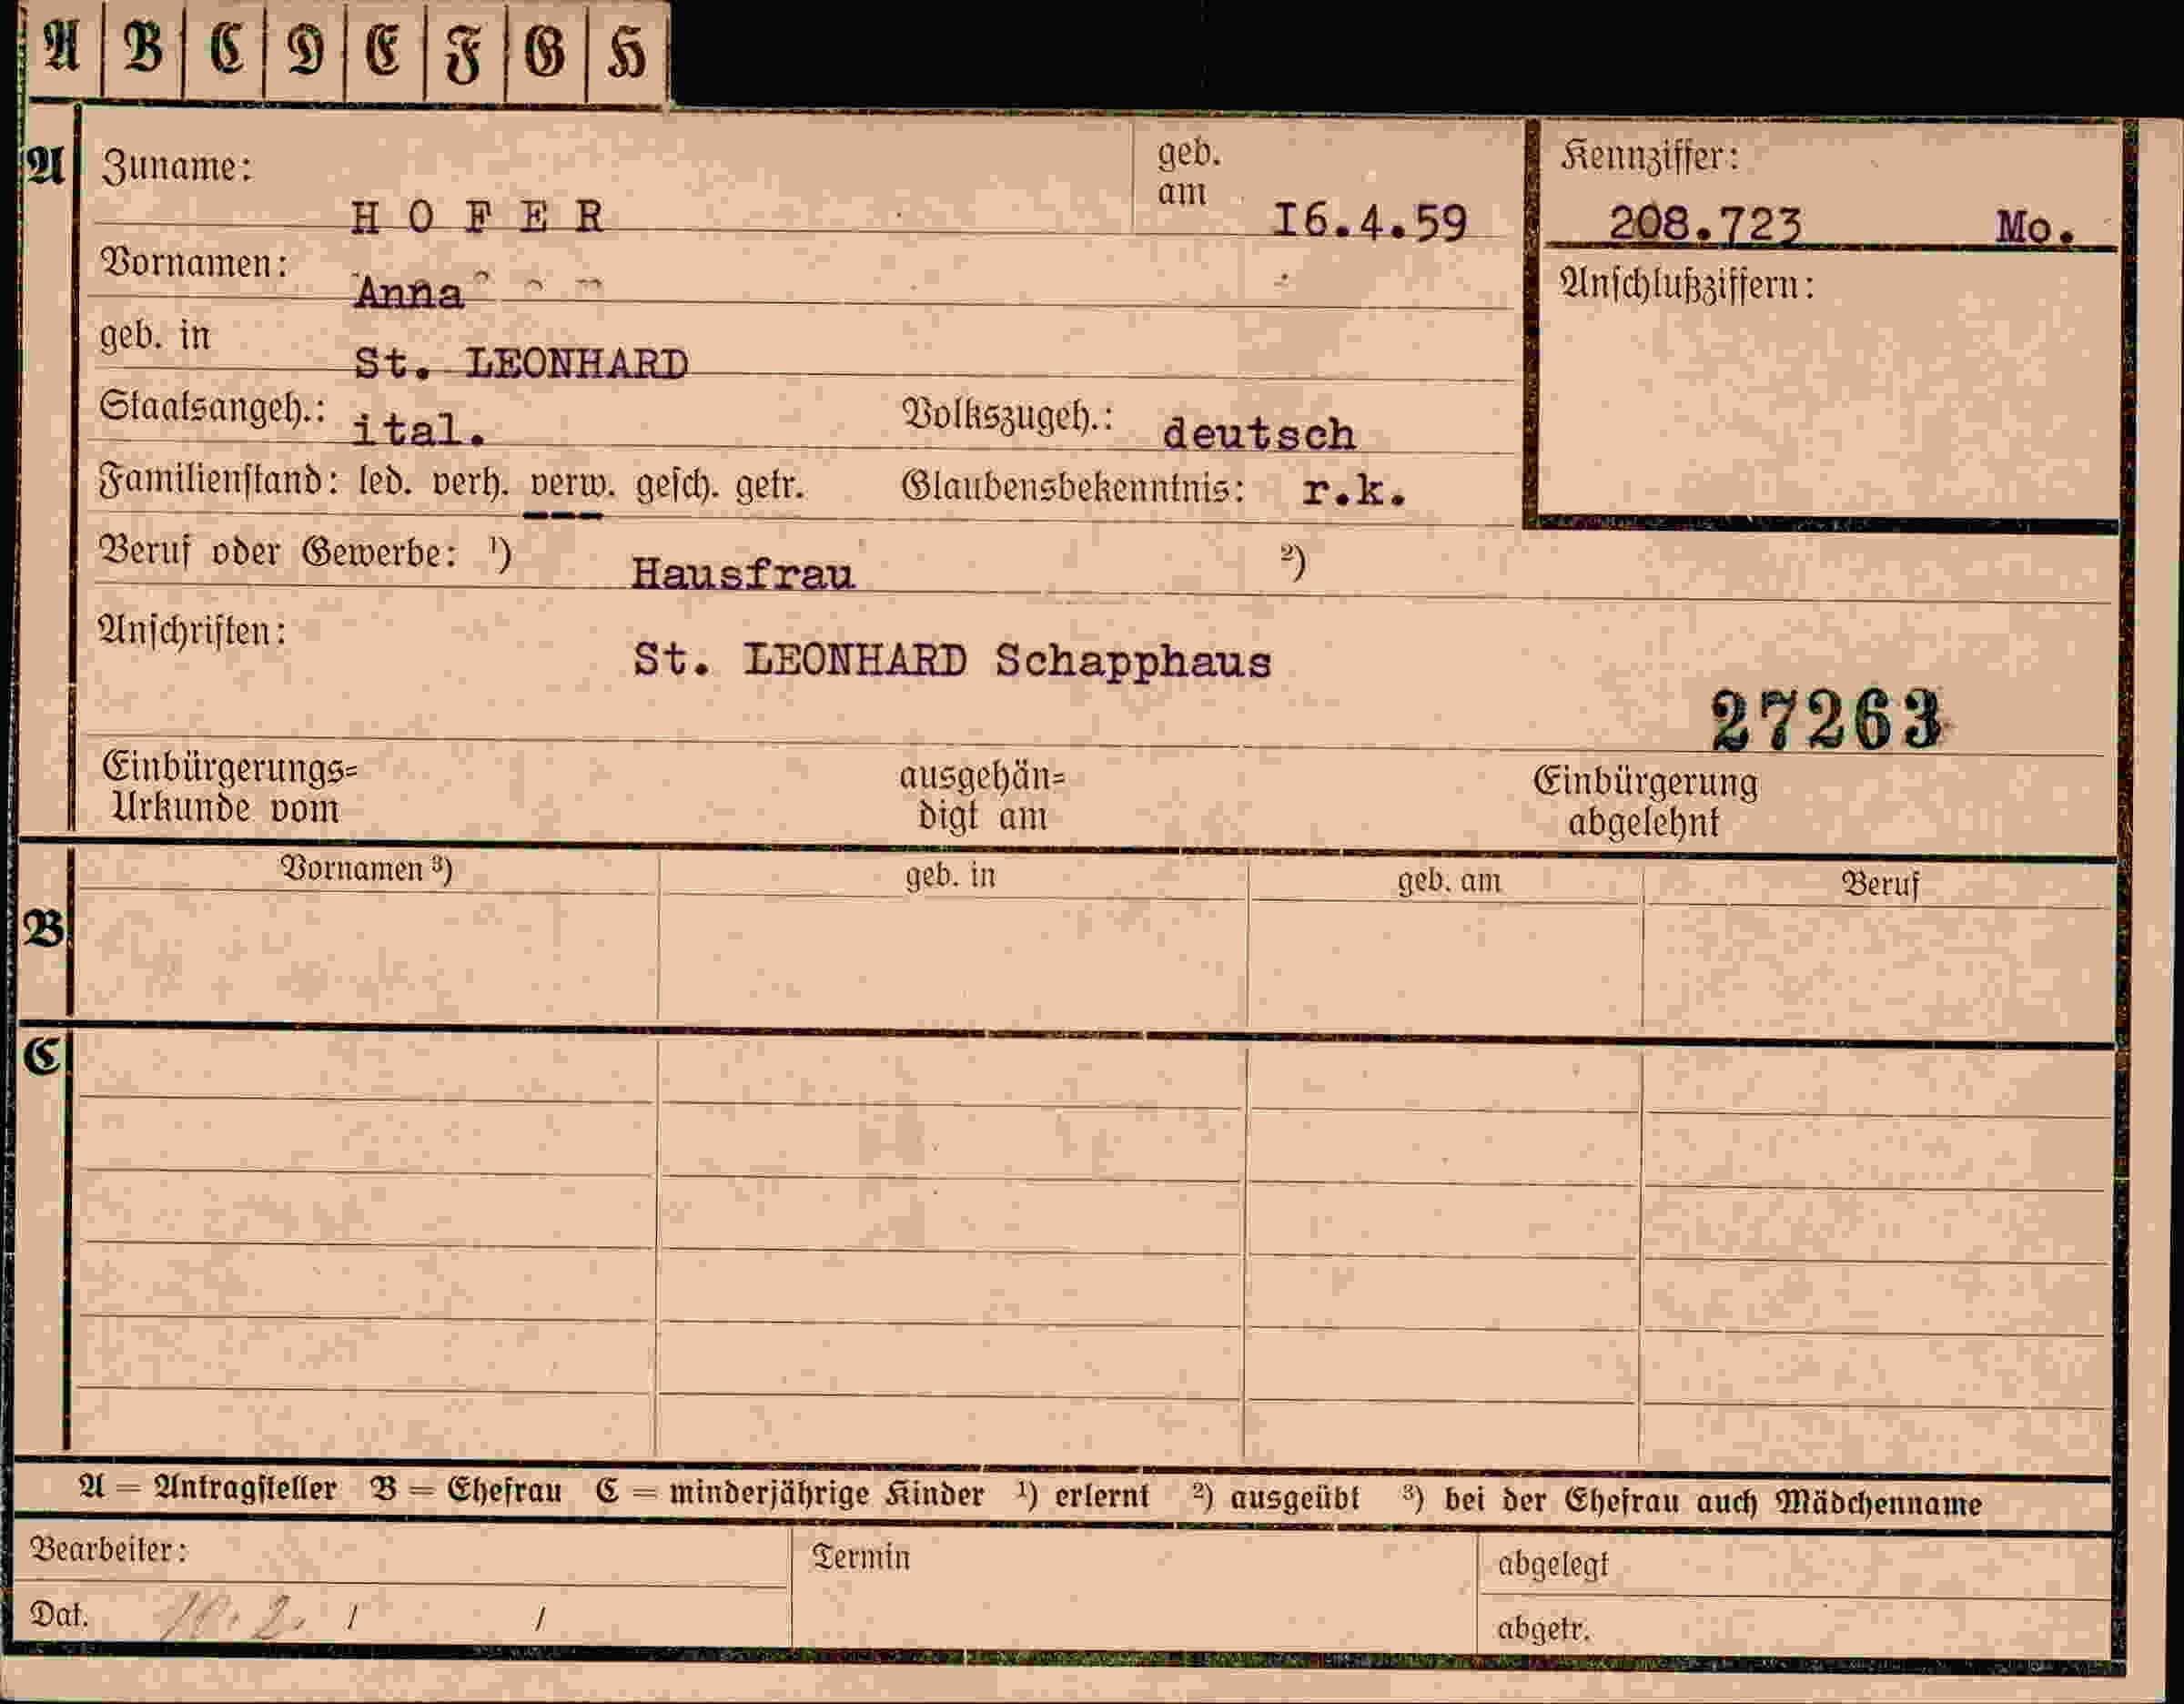 A B C D E F G H
A Zuname: HOFER geb. am I6.4.59 Kennziffer: 208.723 Mo.
Vornamen: Anna Anschlußziffern:
geb. in St. LEONHARD
Staatsangeh.: ital. Volkszugeh.: deutsch
Familienstand: led. verh. verw. gesch. getr. Glaubensbekenntnis: r.k.
Beruf oder Gewerbe: 1) Hausfrau 2)
Anschriften: St. LEONHARD Schapphaus
27263
Einbürgerungs= ausgehän= Einbürgerung
Urkunde vom digt am abgelehnt
Vornamen 3) geb. in geb. am Beruf
B
C
A = Antragsteller B = Ehefrau C = minderjährige Kinder 1) erlernt 2) ausgeübt 3) bei der Ehefrau auch Mädchenname
Bearbeiter: Termin abgelegt
Dat. / / abgetr.